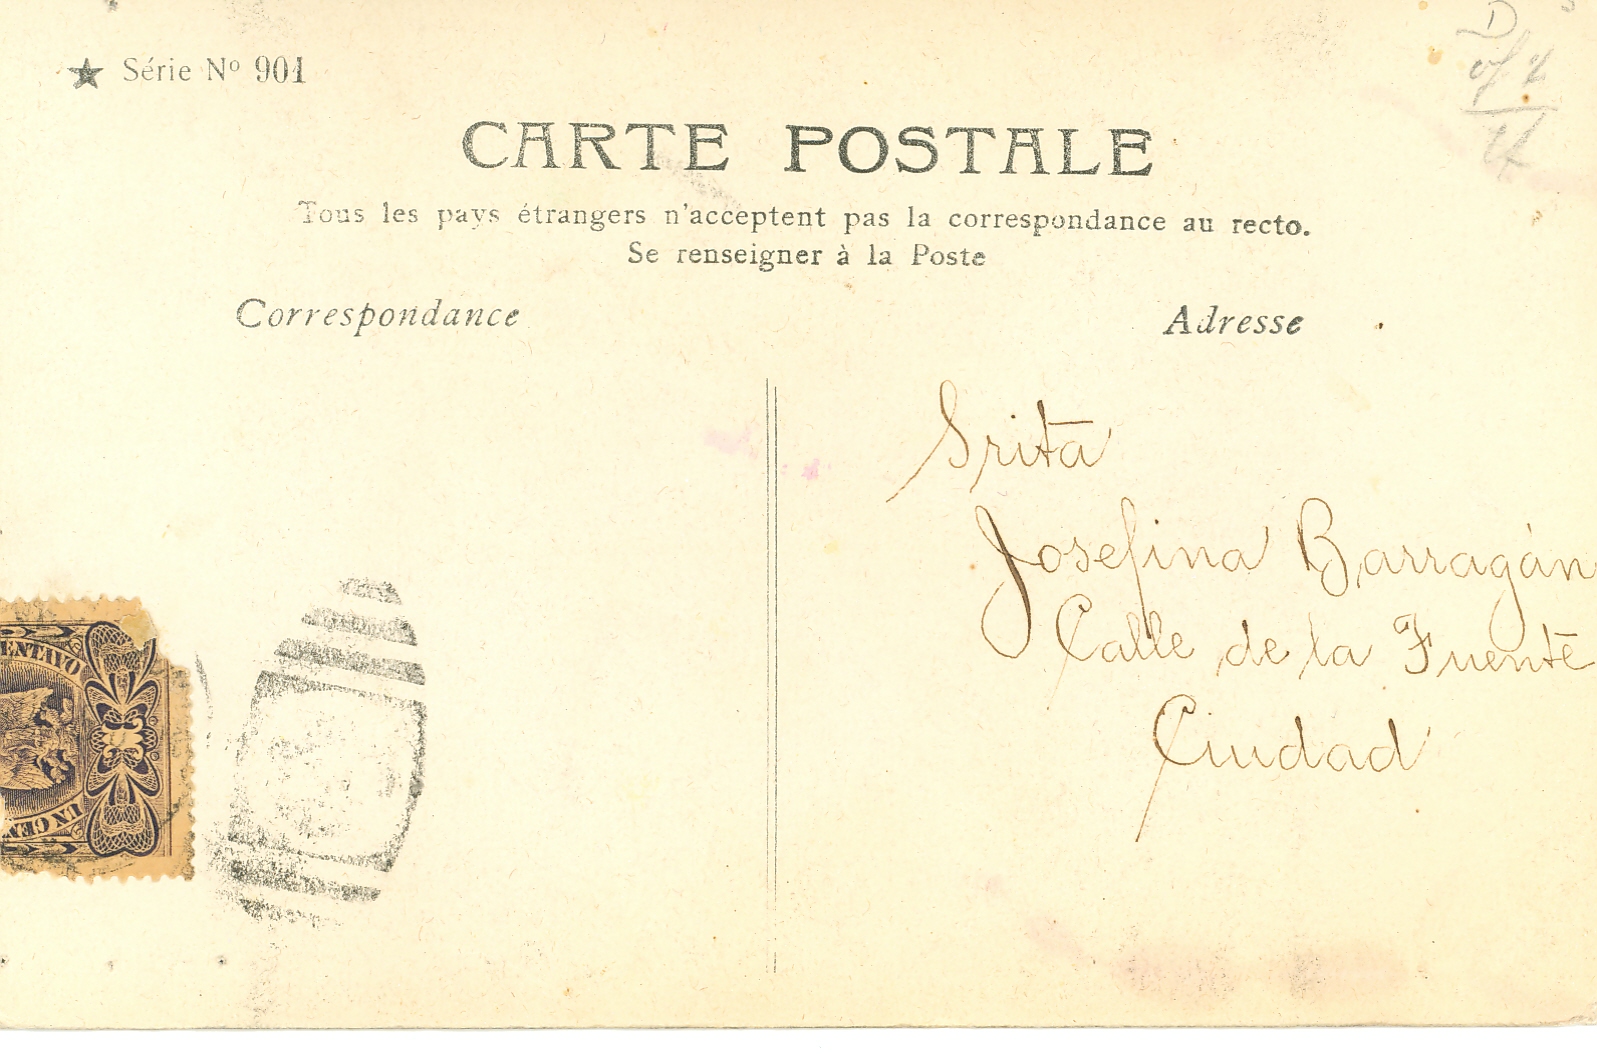 ★ Série Nº 901
CARTE POSTALE
Tous les pays étrangers n'acceptent pas la correspondance au recto.
Se renseigner à la Poste
Correspondance
Adresse
Srita
Josefina Barragán
Calle de la Fuente
Ciudad
ENTAVO
UN CEN